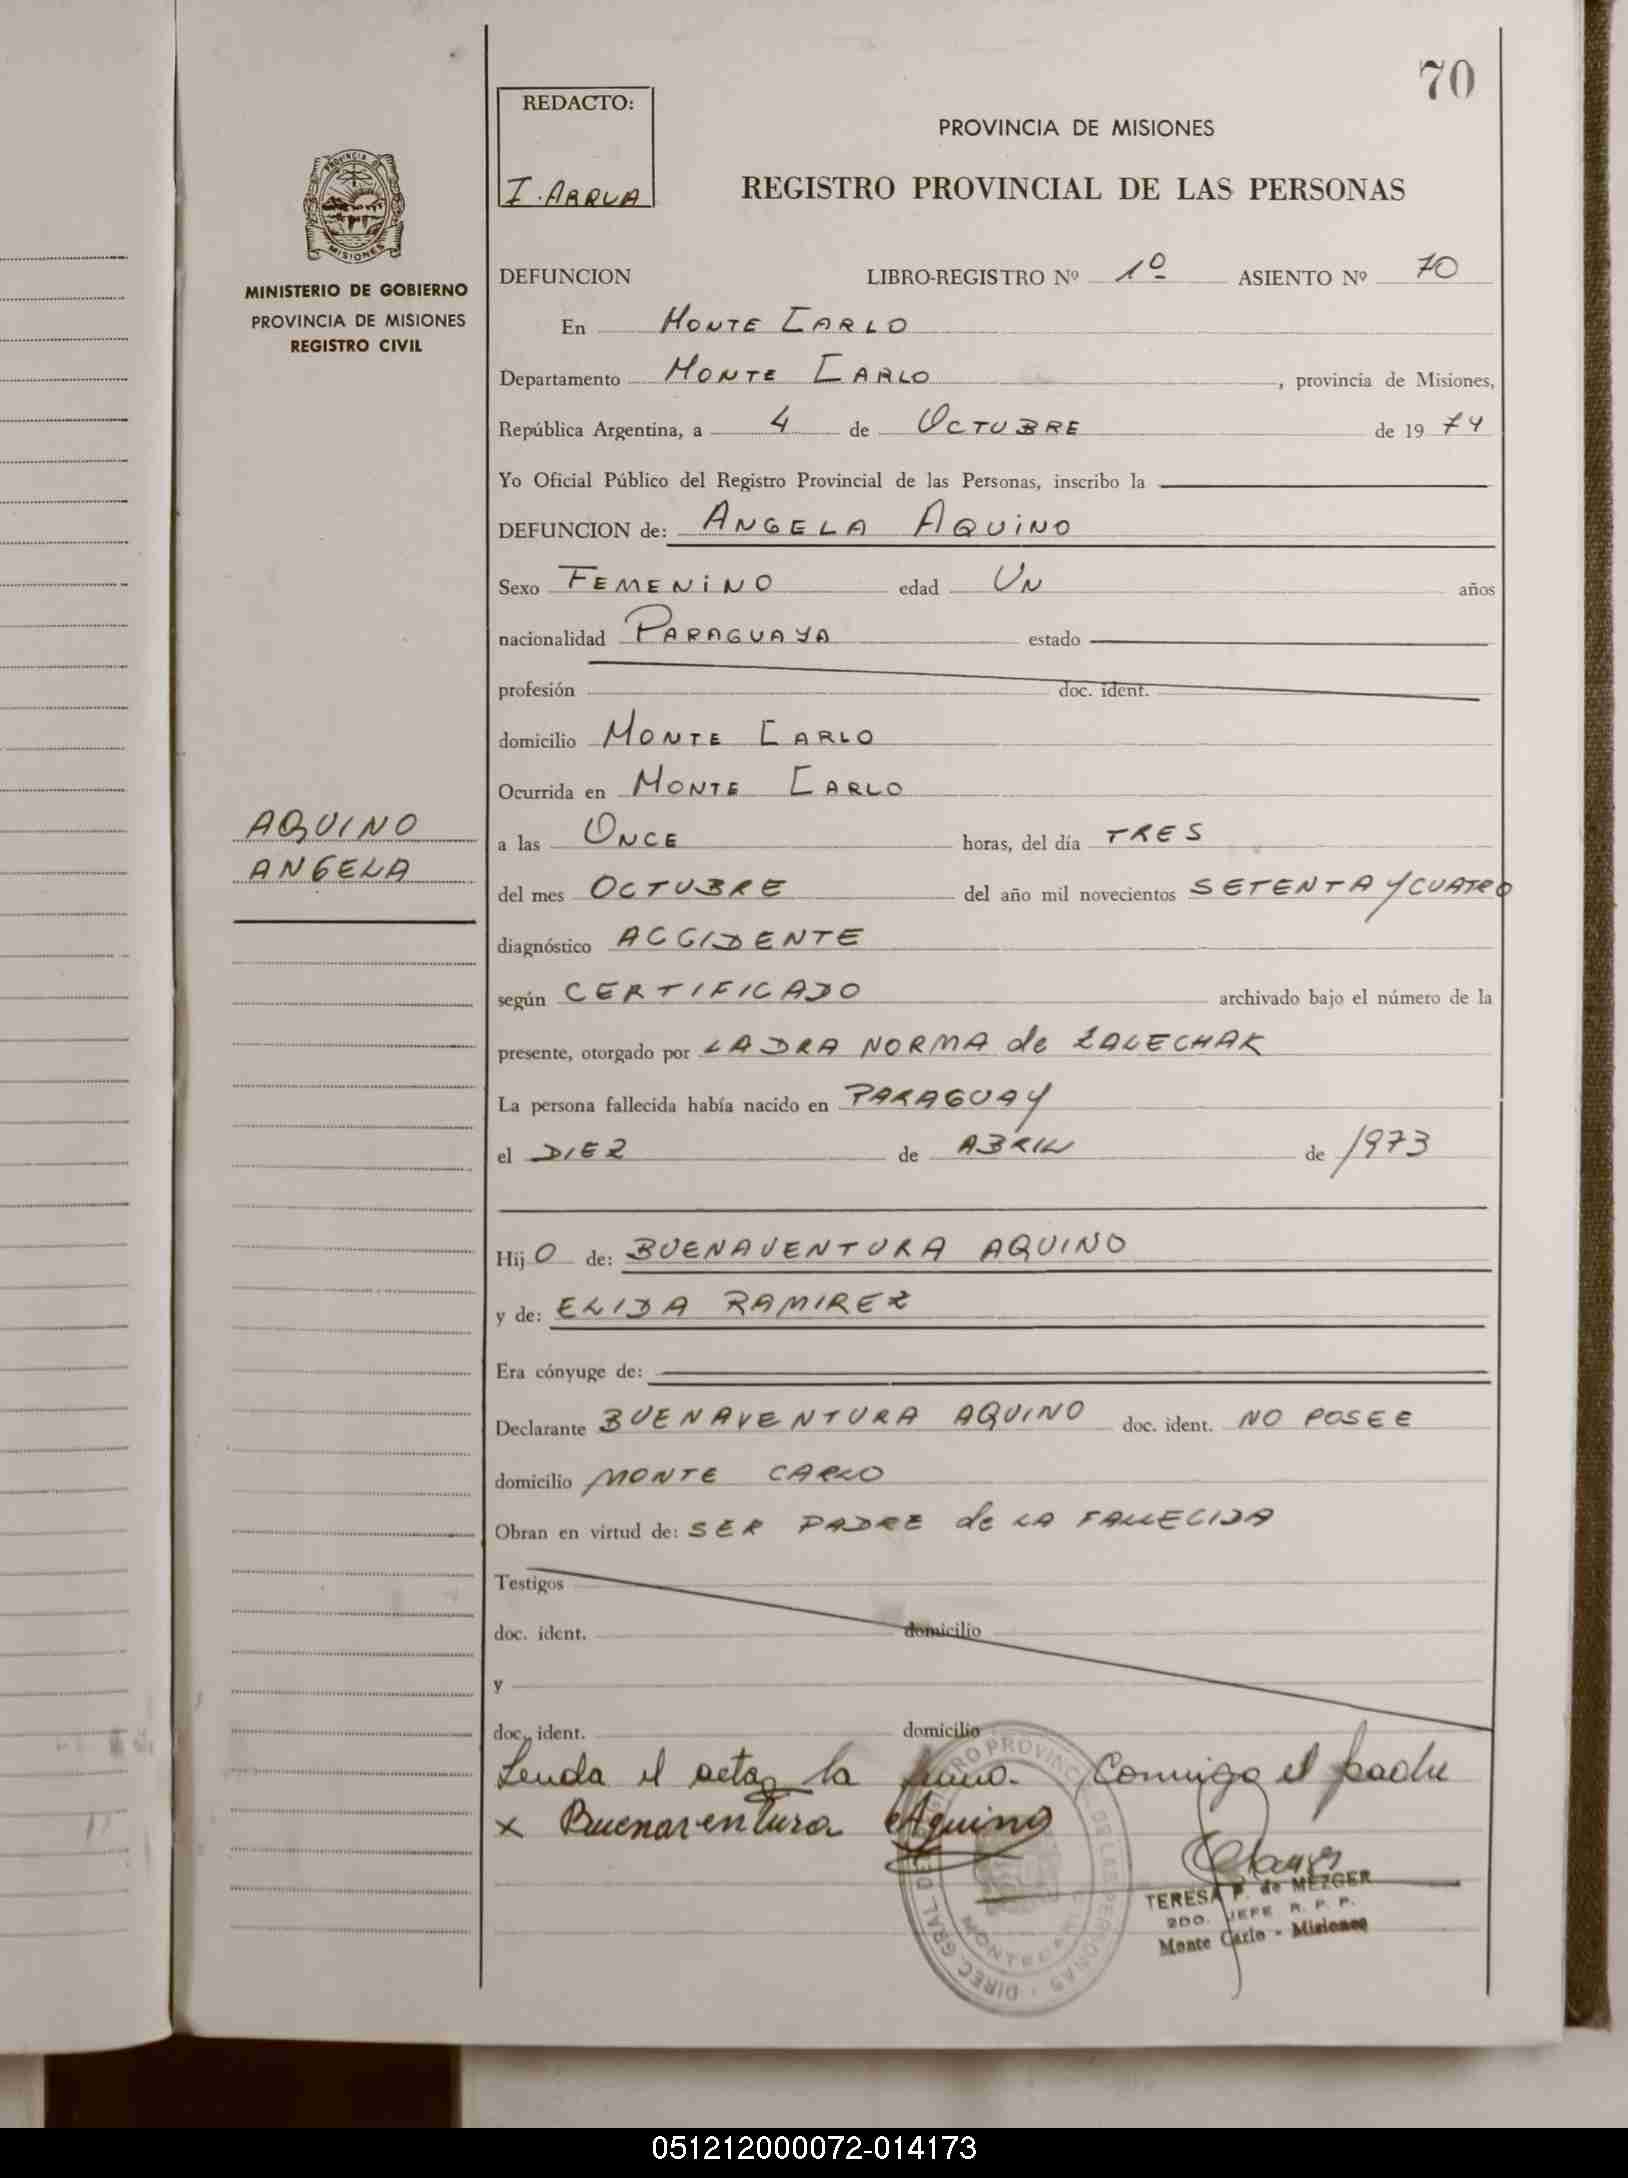 70
REDACTO:
I. ARRUA
PROVINCIA DE MISIONES
REGISTRO PROVINCIAL DE LAS PERSONAS
PROVINCIA DE
MISIONES
MINISTERIO DE GOBIERNO
PROVINCIA DE MISIONES
REGISTRO CIVIL
DEFUNCION LIBRO-REGISTRO Nº 1º ASIENTO Nº 70
En MONTE CARLO
Departamento MONTE CARLO, provincia de Misiones,
República Argentina, a 4 de OCTUBRE de 1974
Yo Oficial Público del Registro Provincial de las Personas, inscribo la
DEFUNCION de: ANGELA AQUINO
Sexo FEMENINO edad UN años
nacionalidad PARAGUAYA estado
profesión doc. ident.
domicilio MONTE CARLO
Ocurrida en MONTE CARLO
AQUINO
ANGELA
a las ONCE horas, del día TRES
del mes OCTUBRE del año mil novecientos SETENTA Y CUATRO
diagnóstico ACCIDENTE
según CERTIFICADO archivado bajo el número de la
presente, otorgado por LA DRA NORMA de ZALECHAK
La persona fallecida había nacido en PARAGUAY
el DIEZ de ABRIL de 1973
HijO de: BUENAVENTURA AQUINO
y de: ELIDA RAMIREZ
Era cónyuge de:
Declarante BUENAVENTURA AQUINO doc. ident. NO POSEE
domicilio MONTE CARLO
Obran en virtud de: SER PADRE de LA FALLECIDA
Testigos
doc. ident. domicilio
y
doc. ident. domicilio
Leida el acta, la firma. Conmigo el padre
x Buenaventura Aquino
TERESA P. de MEZGER
2DO. JEFE R. P. P.
Monte Carlo - Misiones
051212000072-014173